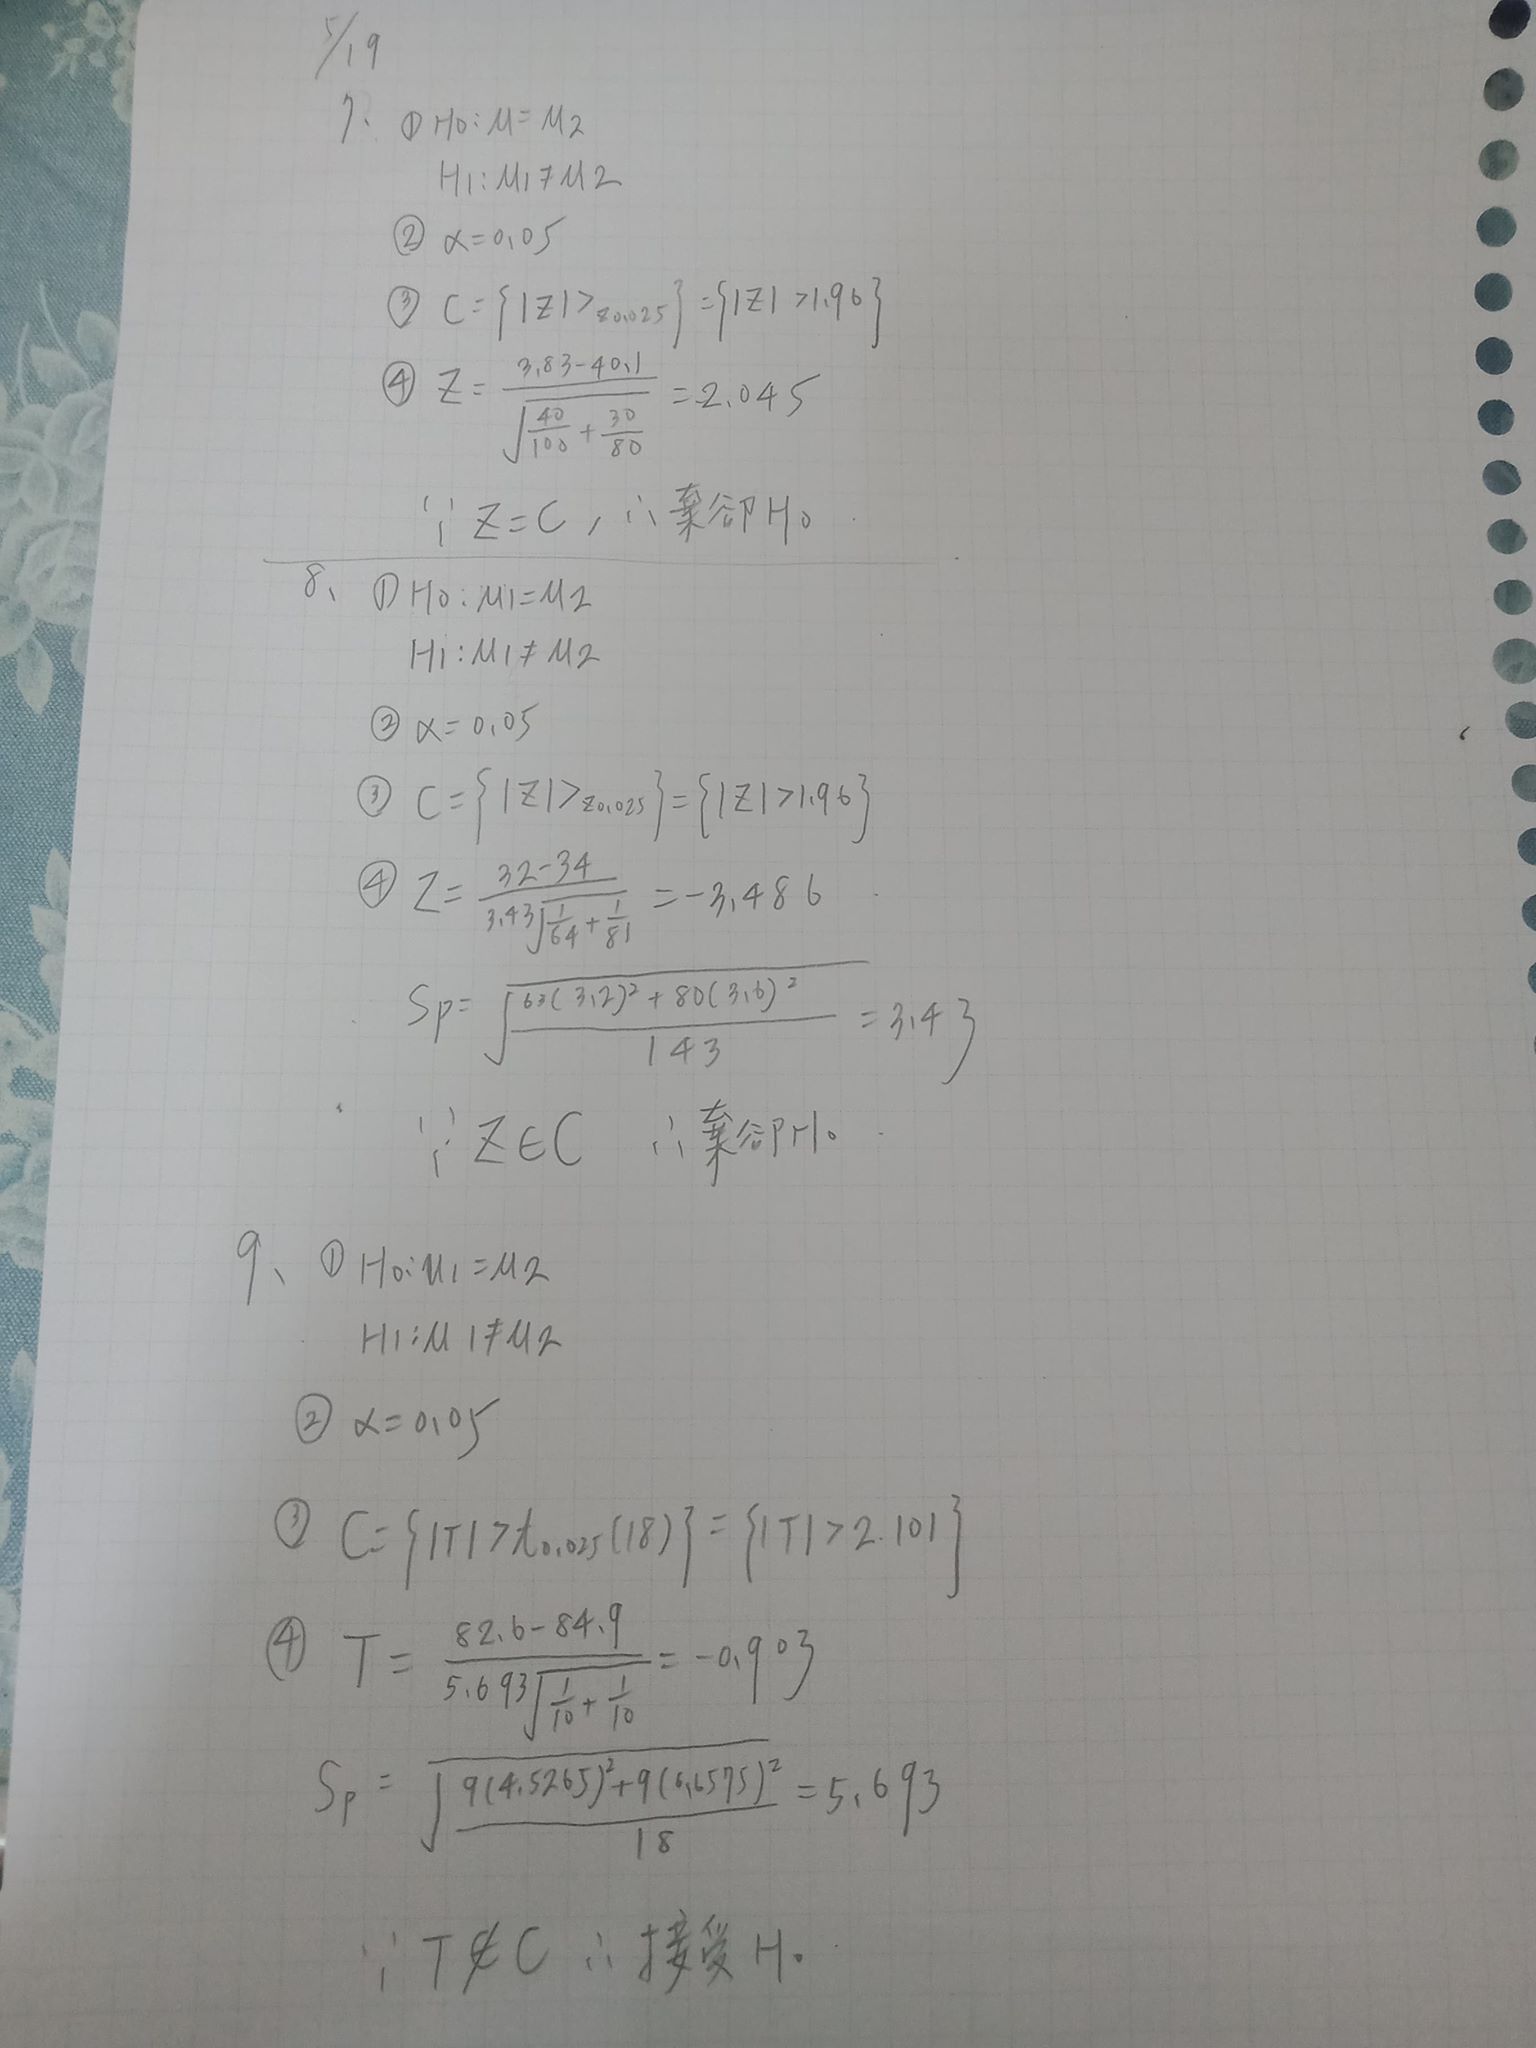 5/19
7. ① H0: μ = μ2
H1: μ1 ≠ μ2
② α = 0.05
③ C = {|Z| > z0.025} = {|Z| > 1.96}
④ Z = (3.83 - 40.1) / √(40/100 + 30/80) = -2.045
∵ Z = C, ∴ 棄卻H0
8、① H0: μ1 = μ2
H1: μ1 ≠ μ2
② α = 0.05
③ C = {|Z| > z0.025} = {|Z| > 1.96}
④ Z = (32 - 34) / (3.43√(1/64 + 1/81)) = -3.486
Sp = √((63(3.2)² + 80(3.6)²) / 143) = 3.43
∵ Z ∈ C ∴ 棄卻H0
9、① H0: μ1 = μ2
H1: μ1 ≠ μ2
② α = 0.05
③ C = {|T| > t0.025(18)} = {|T| > 2.101}
④ T = (82.6 - 84.9) / (5.693√(1/10 + 1/10)) = -0.903
Sp = √((9(4.5265)² + 9(6.6575)²) / 18) = 5.693
∵ T ∉ C ∴ 接受H0